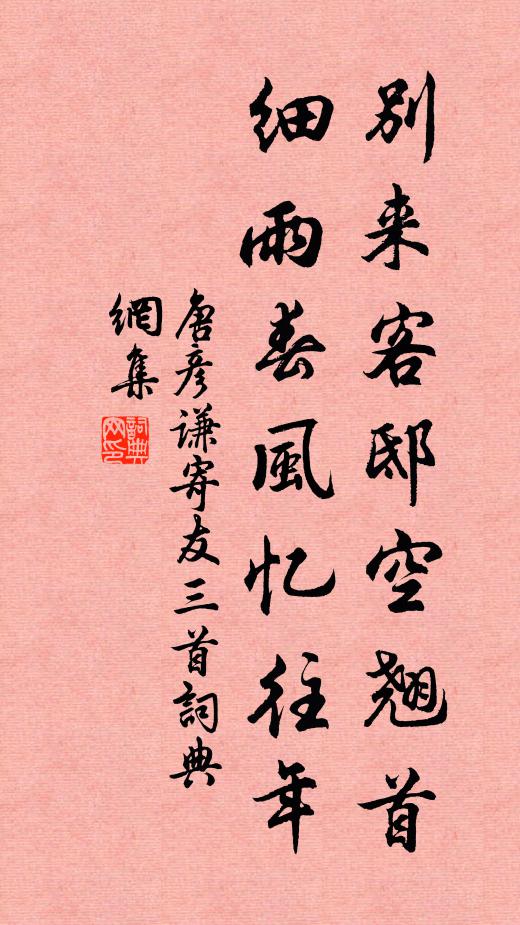 別来客邸空翘首
細雨春風忆往年
唐彦谦寄友三首詞典
網集
詞典
网印